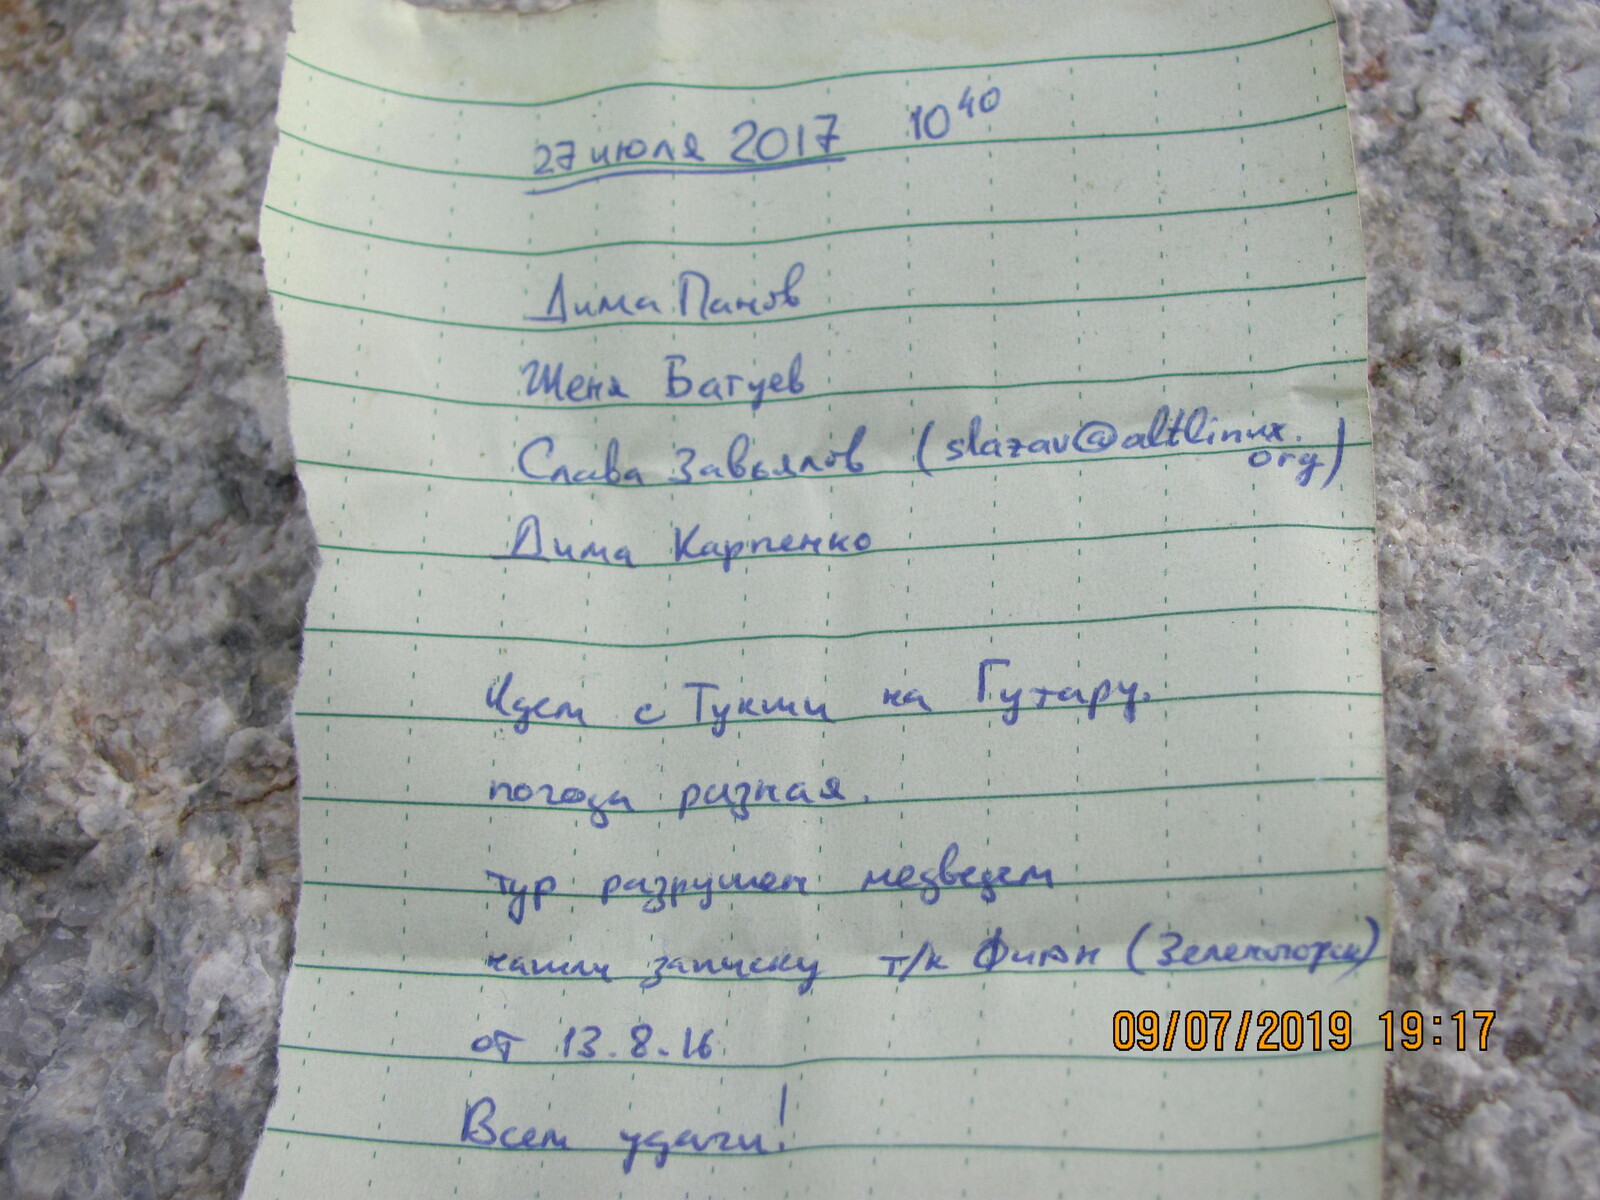 27 июля 2017 10 40
Дима Панов
Женя Батуев
Слава Завьялов (slazav@altlinux.
org)
Дима Карпенко
Идем с Тукши на Гутару.
погода разная.
тур разрушен медведем
нашли записку т/к (Зеленогорск)
от 13.8.16
Всем удачи!
09/07/2019 19:17